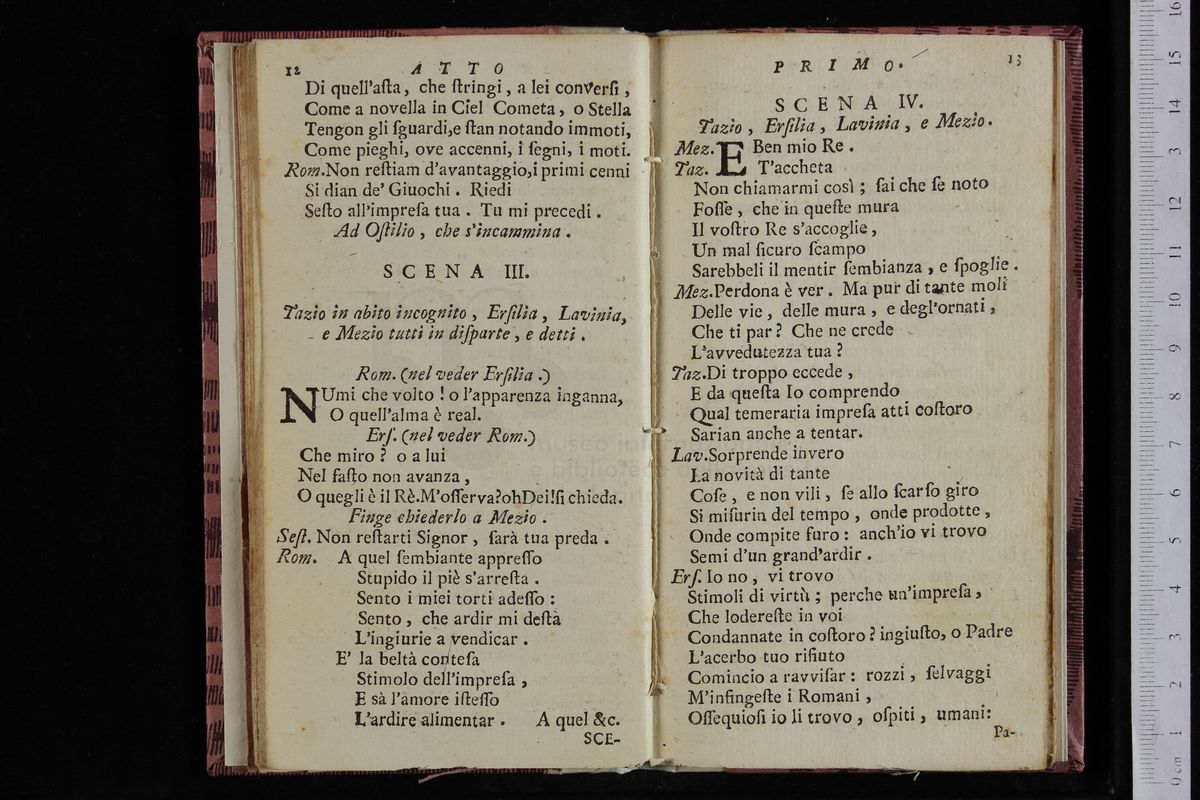 12 ATTO
Di quell'aſta, che ſtringi, a lei converſi,
Come a novella in Ciel Cometa, o Stella
Tengon gli ſguardi,e ſtan notando immoti,
Come pieghi, ove accenni, i ſegni, i moti.
Rom.Non reſtiam d'avantaggio,i primi cenni
Si dian de' Giuochi. Riedi
Seſto all'impreſa tua. Tu mi precedi.
Ad Oſtilio, che s'incammina.
SCENA III.
Tazio in abito incognito, Erſilia, Lavinia,
e Mezio tutti in diſparte, e detti.
Rom. (nel veder Erſilia.)
NUmi che volto! o l'apparenza inganna,
O quell'alma è real.
Erſ. (nel veder Rom.)
Che miro? o a lui
Nel faſto non avanza,
O quegli è il Rè.M'oſſerva?ohDei!ſi chieda.
Finge chiederlo a Mezio.
Seſt. Non reſtarti Signor, ſarà tua preda.
Rom. A quel ſembiante appreſſo
Stupido il piè s'arreſta.
Sento i miei torti adeſſo:
Sento, che ardir mi deſtà
L'ingiurie a vendicar.
E' la beltà conteſa
Stimolo dell'impreſa,
E sà l'amore iſteſſo
L'ardire alimentar. A quel &c.
SCE-
PRIMO. 13
SCENA IV.
Tazio, Erſilia, Lavinia, e Mezio.
Mez. EBen mio Re.
Taz. T'accheta
Non chiamarmi così; ſai che ſe noto
Foſſe, che in queſte mura
Il voſtro Re s'accoglie,
Un mal ſicuro ſcampo
Sarebbeli il mentir ſembianza, e ſpoglie.
Mez.Perdona è ver. Ma pur di tante moli
Delle vie, delle mura, e degl'ornati,
Che ti par? Che ne crede
L'avvedutezza tua?
Taz.Di troppo eccede,
E da queſta Io comprendo
Qual temeraria impreſa atti coſtoro
Sarian anche a tentar.
Lav.Sorprende invero
La novità di tante
Coſe, e non vili, ſe allo ſcarſo giro
Si miſurin del tempo, onde prodotte,
Onde compite furo: anch'io vi trovo
Semi d'un grand'ardir.
Erſ. Io no, vi trovo
Stimoli di virtù; perche un'impreſa,
Che lodereſte in voi
Condannate in coſtoro? ingiuſto, o Padre
L'acerbo tuo rifiuto
Comincio a ravviſar: rozzi, ſelvaggi
M'infingeſte i Romani,
Oſſequioſi io li trovo, oſpiti, umani:
Pa-